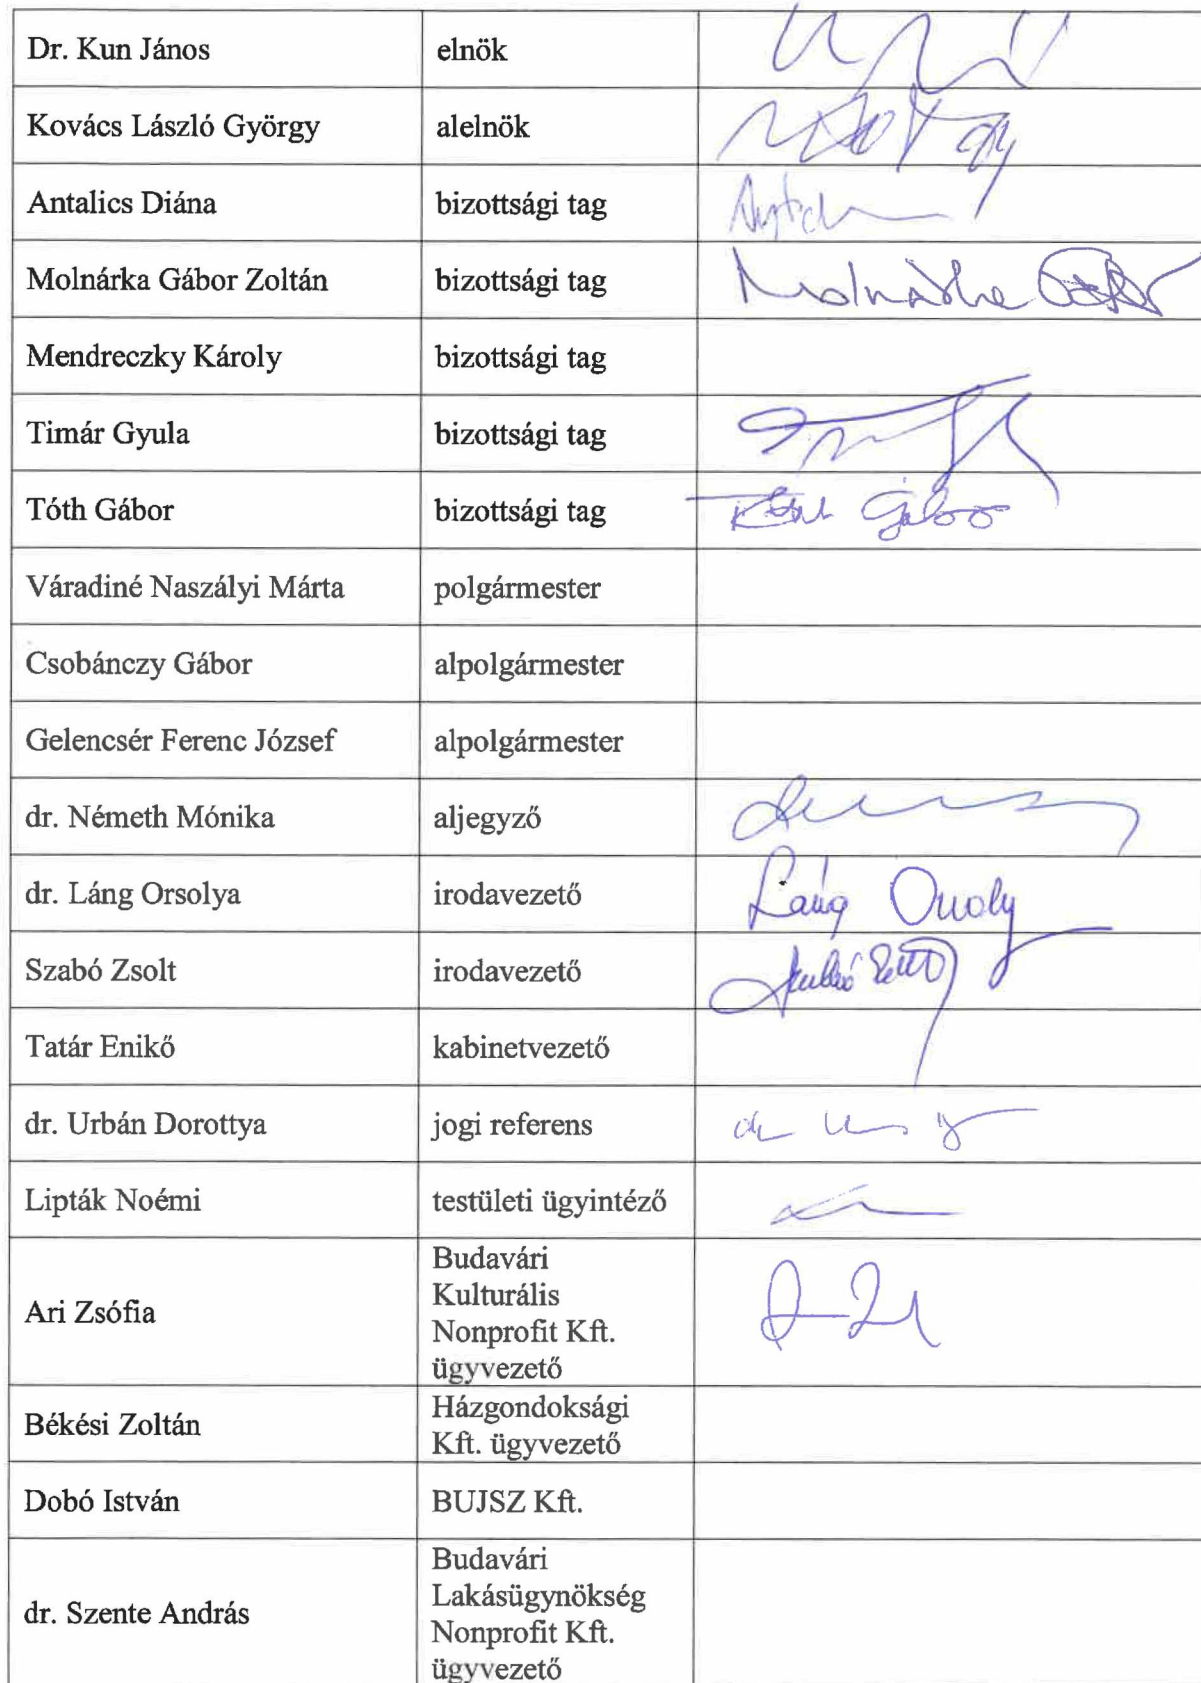 Dr. Kun János elnök
Kovács László György alelnök
Antalics Diána bizottsági tag
Molnárka Gábor Zoltán bizottsági tag Molnárka Gábor
Mendreczky Károly bizottsági tag
Timár Gyula bizottsági tag
Tóth Gábor bizottsági tag Tóth Gábor
Váradiné Naszályi Márta polgármester
Csobánczy Gábor alpolgármester
Gelencsér Ferenc József alpolgármester
dr. Németh Mónika aljegyző
dr. Láng Orsolya irodavezető Láng Orsoly
Szabó Zsolt irodavezető
Tatár Enikő kabinetvezető
dr. Urbán Dorottya jogi referens
Lipták Noémi testületi ügyintéző
Ari Zsófia
Budavári
Kulturális
Nonprofit Kft.
ügyvezető
Békési Zoltán
Házgondoksági
Kft. ügyvezető
Dobó István BUJSZ Kft.
dr. Szente András
Budavári
Lakásügynökség
Nonprofit Kft.
ügyvezető